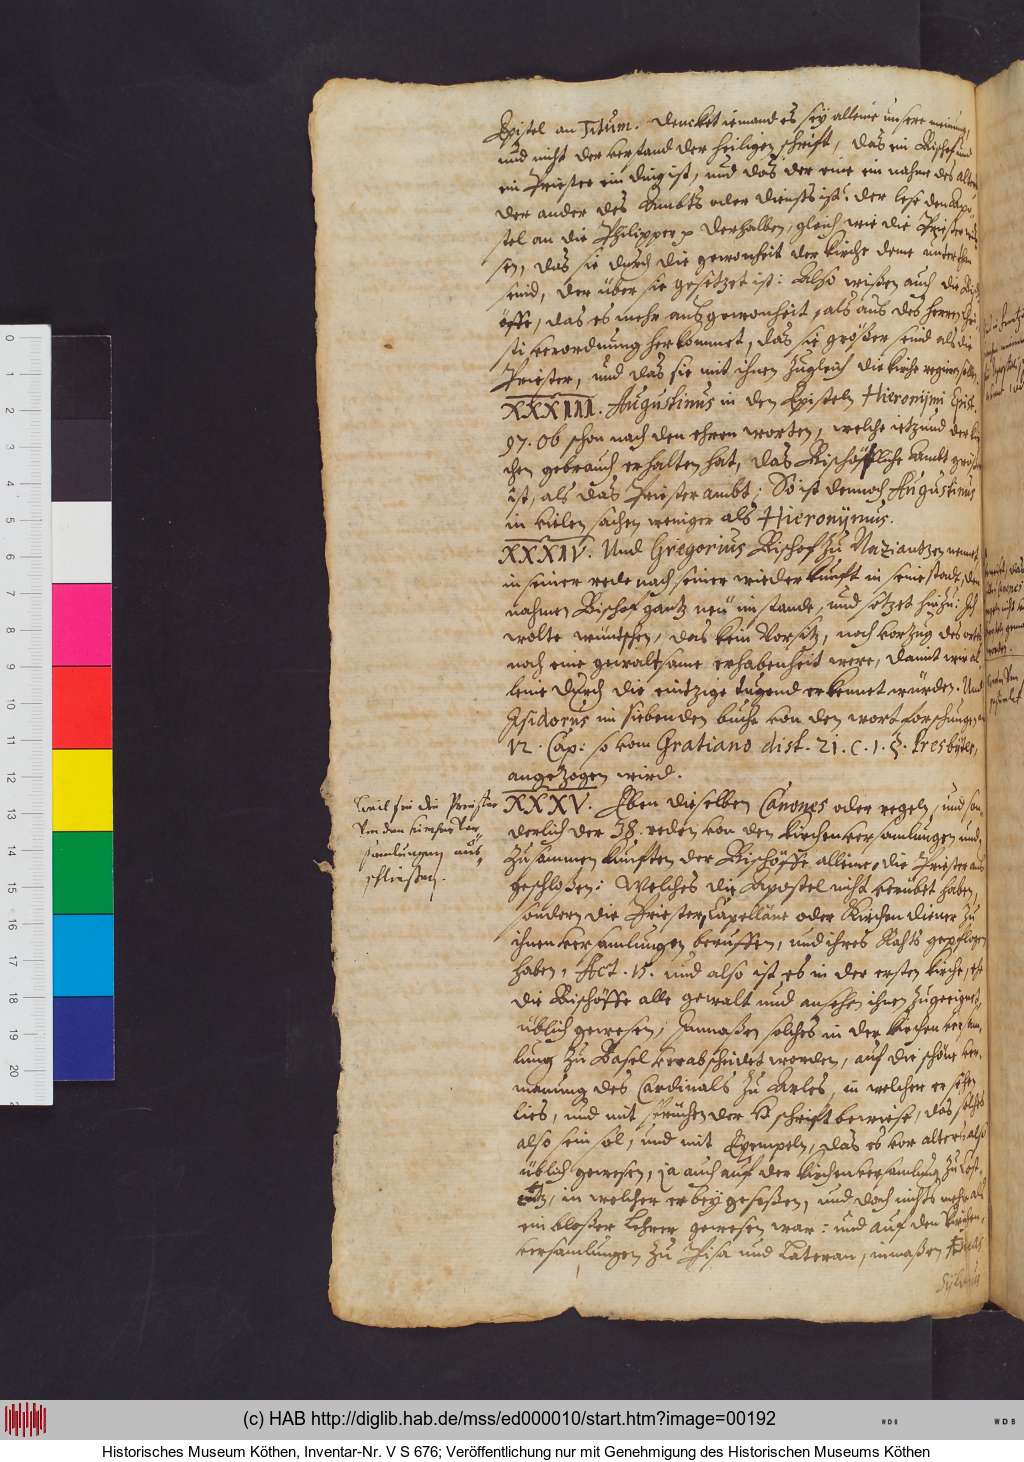 Epistel an Titum. Dencket iemand es sey alleine unsere meinung,
und nicht der verstand der heiligen schrift, das ein Bischof und
ein Priester ein ding ist, und das der eine ein nahme des alters
der ander des Ambts oder diensts ist: der lese den Apo-
stel an die Philipper p Derhalben, gleich wie die Priester wis-
sen, das sie durch die gewonheit der kirche deme unterthan
seind, der über sie gesetzet ist: Also wißen auch die Bisch
öffe, das es mehr aus gewonheit, als aus des Herren Chri-
sti verordnung herkommet, das sie größer seind als die
Priester, und das sie mit ihnen zugleich die kirche regiren sollen.
XXXIII. Augustinus in den Episteln Hieronijmi Epist.
97. Ob schon nach den ehren worten, welche ietzund der kir
chen gebrauch erhalten hat, das Bischöffliche Ambt größer
ist, als das Priesterambt; So ist dennoch Augustinus
in vielen sachen weniger als Hieronijmus.
XXXIV. Und Gregorius Bischof zu Nazianzen nennet
in seiner rede nach seiner wiederkunft in seine stadt, den
nahmen Bischof gantz neü im stande, und setzet hinzu: Ich
wolte wüntschen, das kein Vorsitz, noch vorzug des orts,
noch eine gewaltsame erhabenheit were, damit wir al-
leine durch die eintzige tugend erkennet würden. Und
Isidorus im siebenden buche von den wortforschungen
12. Cap: so vom Gratiano dist. 21. c. 1. §. Presbyter,
angezogen wird.
XXXV. Eben dieselben Canones oder regeln, und son-
derlich der 38. reden von den kirchenversamlungen und
zusammenkünften der Bischöffe alleine, die Priester aus
geschloßen: Welches die Apostel nicht verübet haben,
sondern die Priester, Capelläne oder Kirchendiener zu
ihnen versamlungen beruffen, und ihres Rahts gepflogen
haben, Act. 15. und also ist es in der ersten kirche, ehe
die Bischöffe alle gewalt und ansehen ihnen zugeeignet,
üblich gewesen; Inmaßen solches in der kirchen versam-
lung zu Basel verabscheidet worden, auf die schöne ver-
manung des Cardinals zu Arles, in welcher er sehen
lies, und mit sprüchen der H schrift beweise, das solches
also sein sol, und mit Exempeln, das es vor alters also
üblich gewesen, ja auch auf der kirchenversamlung zu Cost-
nitz, in welcher er beygeseßen, und doch nichts mehr als
ein bloßer Lehrer gewesen war: und auf den kirchen-
versamlungen zu Pisa und Lateran, inmaßen Æneas
Sylvius
weil sie die Priester
von den kirchen Ver-
samlungen aus-
schließen.
(c) HAB http://diglib.hab.de/mss/ed000010/start.htm?image=00192
WDB
WDB
Historisches Museum Köthen, Inventar-Nr. V S 676; Veröffentlichung nur mit Genehmigung des Historischen Museums Köthen